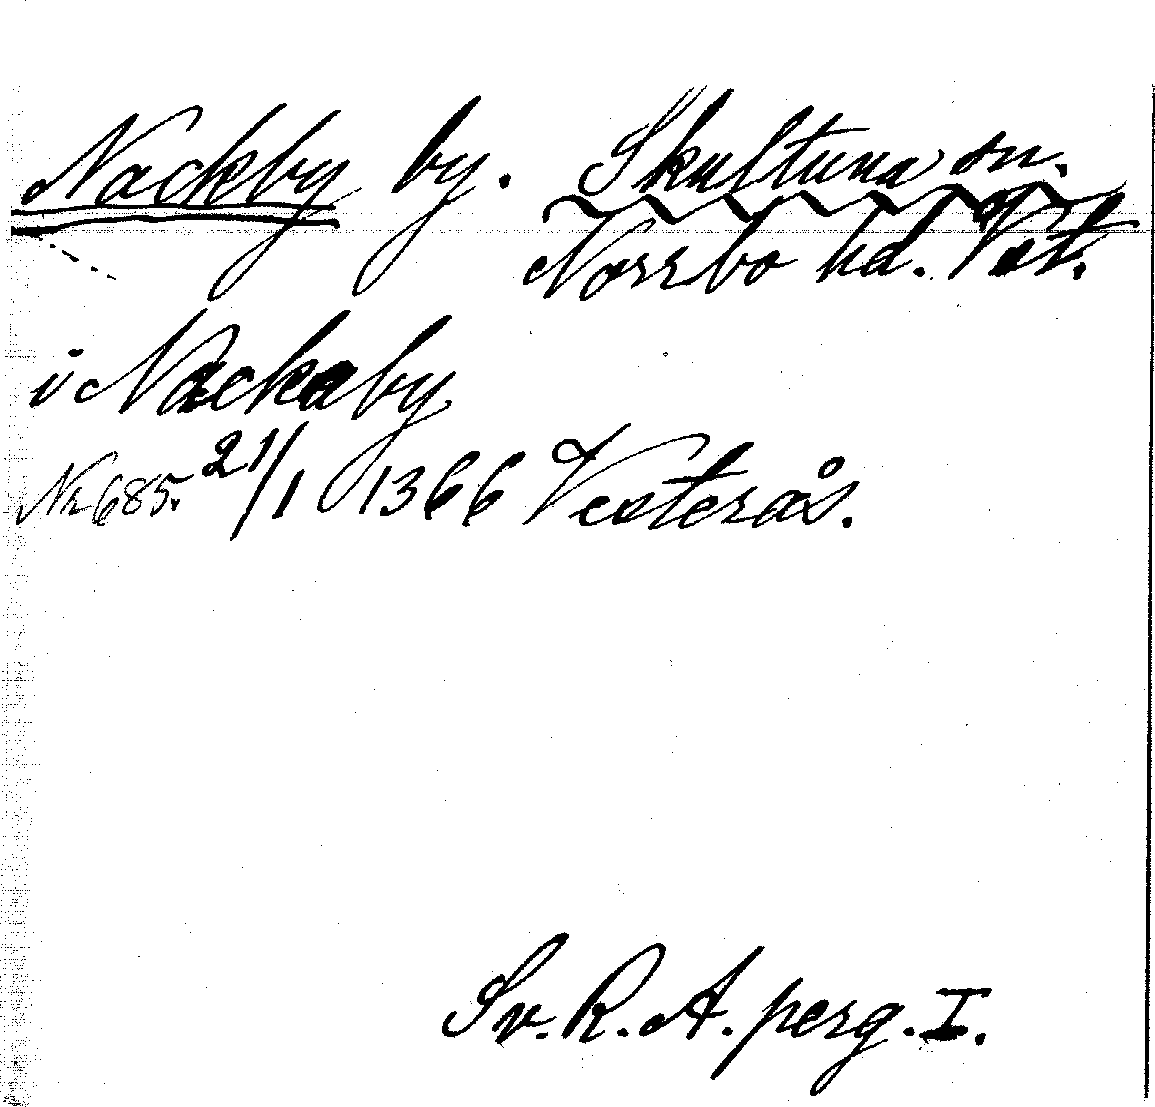 Nackby by. Skultuna sn.
Norrbo hd. Vst.
i Nackaby
Nr 685. 21/1 1366 Vesterås.
Sv. R. A. perg. I.